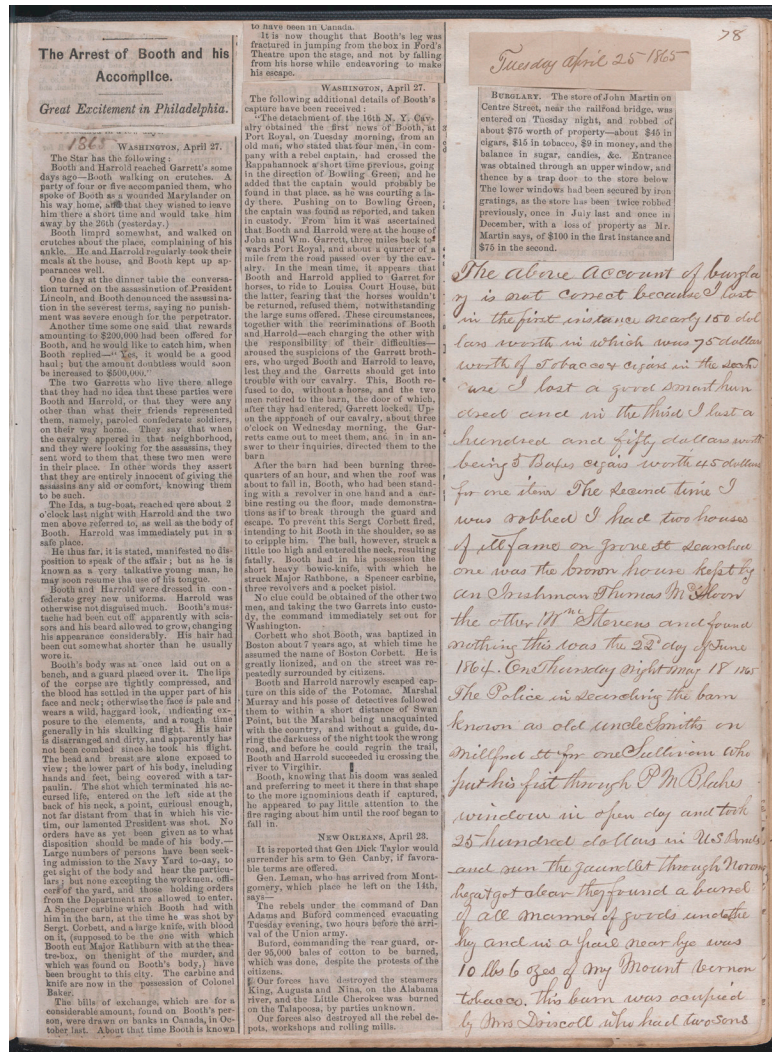 The Arrest of Booth and his
Accomplice.
Great Excitement in Philadelphia.
1865
WASHINGTON, April 27.
The Star has the following:
Booth and Harrold reached Garrett's some
days ago—Booth walking on crutches. A
party of four or five accompanied them, who
spoke of Booth as a wounded Marylander on
his way home, and that they wished to leave
him there a short time and would take him
away by the 26th (yesterday.)
Booth limped somewhat, and walked on
crutches about the place, complaining of his
ankle. He and Harrold regularly took their
meals at the house, and Booth kept up ap-
pearances well.
One day at the dinner table the conversa-
tion turned on the assassination of President
Lincoln, and Booth denounced the assassina-
tion in the severest terms, saying no punish-
ment was severe enough for the perpetrator.
Another time some one said that rewards
amounting to $200,000 had been offered for
Booth, and he would like to catch him, when
Booth replied—"Yes, it would be a good
haul; but the amount doubtless would soon
be increased to $500,000."
The two Garretts who live there allege
that they had no idea that these parties were
Booth and Harrold, or that they were any
other than what their friends represented
them, namely, paroled confederate soldiers,
on their way home. They say that when
the cavalry appered in that neighborhood,
and they were looking for the assassins, they
sent word to them that these two men were
in their place. In other words they assert
that they are entirely innocent of giving the
assassins any aid or comfort, knowing them
to be such.
The Ida, a tug-boat, reached qere about 2
o'clock last night with Harrold and the two
men above referred to, as well as the body of
Booth. Harrold was immediately put in a
safe place.
He thus far, it is stated, manifested no dis-
position to speak of the affair; but as he is
known as a very talkative young man, he
may soon resume tha use of his tongue.
Booth and Harrold were dressed in con-
federate grey new uniforms. Harrold was
otherwise not disguised much. Booth's mus-
tache had been cut off apparently with scis-
sors and his board allowed to grow, changing
his appearance considerably. His hair had
been cut somewhat shorter than he usually
wore it.
Booth's body was at once laid out on a
bench, and a guard placed over it. The lips
of the corpse are tightly compressed, and
the blood has settled in the upper part of his
face and neck; otherwise the face is pale and
wears a wild, haggard look, indicating ex-
posure to the elements, and a rough time
generally in his skulking flight. His hair
is disarranged and dirty, and apparently has
not been combed since he took his flight.
The head and breast are alone exposed to
view; the lower part of his body, including
hands and feet, being covered with a tar-
paulin. The shot which terminated his ac-
cursed life, entered on the left side at the
back of his neck, a point, curiousl enough,
not far distant from that in which his vic-
tim, our lamented President was shot. No
orders have as yet been given as to what
disposition should be made of his body.—
Large numbers of persons have been seek-
ing admission to the Navy Yard to-day, to
get sight of the body and hear the particu-
lars; but none excepting the workmen, offi-
cers of the yard, and those holding orders
from the Department are allowed to enter.
A Spencer carbine which Booth had with
him in the barn, at the time he was shot by
Sergt. Corbett, and a large knife, with blood
on it, (supposed to be the one with which
Booth cut Major Rathburn with at the thea-
tre-box, on thenight of the murder, and
which was found on Booth's body,) have
been brought to this city. The carbine and
knife are now in the possession of Colonel
Baker.
The bills of exchange, which are for a
considerable amount, found on Booth's per-
son, were drawn on banks in Canada, in Oc-
tober last. About that time Booth is known
to have been in Canada.
It is now thought that Booth's leg was
fractured in jumping from the box in Ford's
Theatre upon the stage, and not by falling
from his horse while endeavoring to make
his escape.
WASHINGTON, April 27.
The following additional details of Booth's
capture have been received:
"The detachment of the 16th N. Y. Cav-
alry obtained the first news of Booth, at
Port Royal, on Tuesday morning, from an
old man, who stated that four men, in com-
pany with a rebel captain, had crossed the
Rappahannock a short time previous, going
in the direction of Bowling Green, and he
added that the captain would probably be
found in that place, as he was courting a la-
dy there. Pushing on to Bowling Green,
the captain was found as reported, and taken
in custody. From him it was ascertained
that Booth and Harrold were at the house of
John and Wm. Garrett, three miles back to-
wards Port Royal, and about a quarter of a
mile from the road passed over by the cav-
alry. In the mean time, it appears that
Booth and Harrold applied to Garret for
horses, to ride to Louisa Court House, but
the latter, fearing that the horses wouldn't
be returned, refused them, notwithstanding
the large sums offered. These circumstances,
together with the recriminations of Booth
and Harrold—each charging the other with
the responsibility of their difficulties—
aroused the suspicions of the Garrett broth-
ers, who urged Booth and Harrold to leave,
lest they and the Garretts should get into
trouble with our cavalry. This, Booth re-
fused to do, without a horse, and the two
men retired to the barn, the door of which,
after they had entered, Garrett locked. Up-
on the approach of our cavalry, about three
o'clock on Wednesday morning, the Gar-
retts came out to meet them, and, in in an-
swer to their inquiries, directed them to the
barn
After the barn had been burning three-
quarters of an hour, and when the roof was
about to fall in, Booth, who had been stand-
ing with a revolver in one hand and a car-
bine resting on the floor, made demonstra-
tions as if to break through the guard and
escape. To prevent this Sergt Corbett fired,
intending to hit Booth in the shoulder, so as
to cripple him. The ball, however, struck a
little too high and entered the neck, resulting
fatally. Booth had in his possession the
short heavy bowie-knife, with which he
struck Major Rathbone, a Spencer carbine,
three revolvers and a pocket pistol.
No clue could be obtained of the other two
men, and taking the two Garrets into custo-
dy, the command immediately set out for
Washington.
Corbett who shot Booth, was baptized in
Boston about 7 years ago, at which time he
assumed the name of Boston Corbett. He is
greatly lionized, and on the street was re-
peatedly surrounded by citizens.
Booth and Harrold narrowly escaped cap-
ture on this side of the Potomac. Marshal
Murray and his posse of detectives followed
them to within a short distance of Swan
Point, but the Marshal being unacquainted
with the country, and without a guide, du-
ring the darkuess of the night took the wrong
road, and before he could regrin the trail,
Booth and Harrold succeeded iu crossing the
river to Virgihir.
Booth, knowing that his doom was sealed
and preferring to meet it there in that shape
to the more ignominious death if captured,
he appeared to pay little attention to the
fire raging about him until the roof began to
fall in.
NEW ORLEANS, April 23.
It is reported that Gen Dick Taylor would
surrender his arm to Gen. Canby, if favora-
ble terms are offered.
Gen. Leman, who has arrived from Mont-
gomery, which place he left on the 14th,
says—
The rebels under the command of Dan
Adams and Buford commenced evacuating
Tuesday evening, two hours before the arri-
val of the Union army.
Buford, commanding the rear guard, or-
der 95,000 bales of cotton to be burned,
which was done, despite the protests of the
citizens.
Our forces have destroyed the steamers
King, Augusta and Nina, on the Alabama
river, and the Little Cherokee was burned
on the Talapoosa, by parties unknown.
Our forces also destroyed all the rebel de-
pots, workshops and rolling mills.
78
Tuesday April 25 1865
BURGLARY. The store of John Martin on
Centre Street, near the railroad bridge, was
entered on Tuesday night, and robbed of
about $75 worth of property—about $45 in
cigars, $15 in tobacco, $9 in money, and the
balance in sugar, candies, &c. Entrance
was obtained through an upper window, and
thence by a trap door to the store below
The lower windows had been secured by iron
gratings, as the store has been twice robbed
previously, once in July last and once in
December, with a loss of property as Mr.
Martin says, of $100 in the first instance and
$75 in the second.
The above Account of burgla
ry is not correct because I lost
in the first instance nearly 150 dol
lars worth in which was 75 dollars
worth of Tobacco & cigars in the second
case I lost a good smart hun
dred and in the third I lost a
hundred and fifty dollars worth
being 5 Boxes cigars worth 45 dollars
for one item The second time I
was robbed I had two houses
of ill fame on grove st searched
one was the brown house kept by
an Irishman Thomas McGloon
the other Mrs Stevens and found
nothing this was the 22d day of June
1864. On Thursday night May 18 1865
The Police in searching the barn
known as old uncle Smiths on
Millford st for one Sullivan who
put his fist through P M Blakes
window in open day and took
25 hundred dollars in U S Bonds
and run the gauntlet through
he got clear they found a barrel
of all manner of goods under the
hay and in a pail near bye was
10 lbs 6 ozes of my Mount Vernon
tobacco. this barn was occupied
by Mrs Driscoll who had two sons